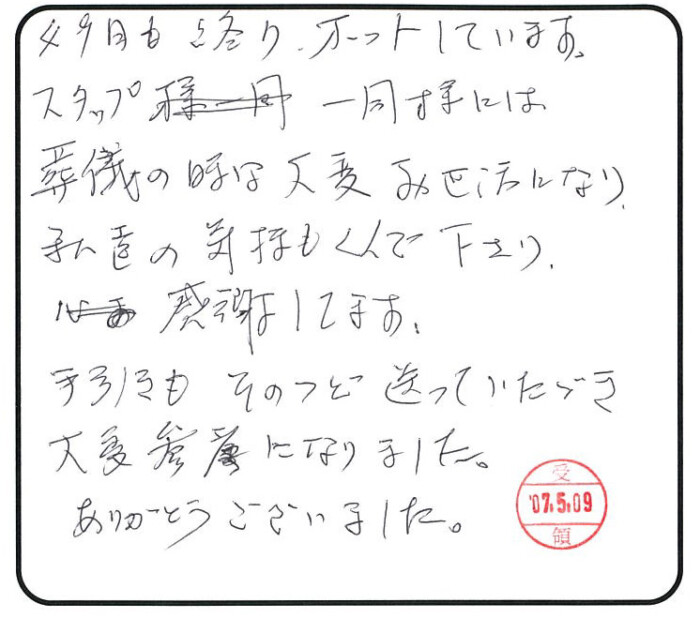 49日も終り、ホットしています。
スタッフ 一同様には
葬儀の時は大変お世話になり、
私達の気持もくんで下さり、
感謝してます。
手引きも そのつど送っていただき
大変参考になりました。
ありがとうございました。
受
'07.5.09
領